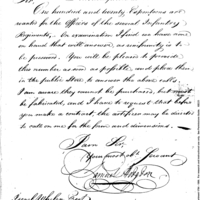 Sir
One hundred and twenty Espontoons are
wanted for the Officers of the several Infantry
Regiments. On examination I find we have none
on hand that will answer, as uniformity is to
be preserved. You will be pleased to provide
this number as soon as possible, and place them
in the public Store to answer the above calls.
I am aware they cannot be purchased, but must
be fabricated, and I have to request that before
you make a contract, the artificer may be directed
to call on me for the form and dimensions.
I am Sir,
Your most Ob. Servant
Samuel Hodgdon